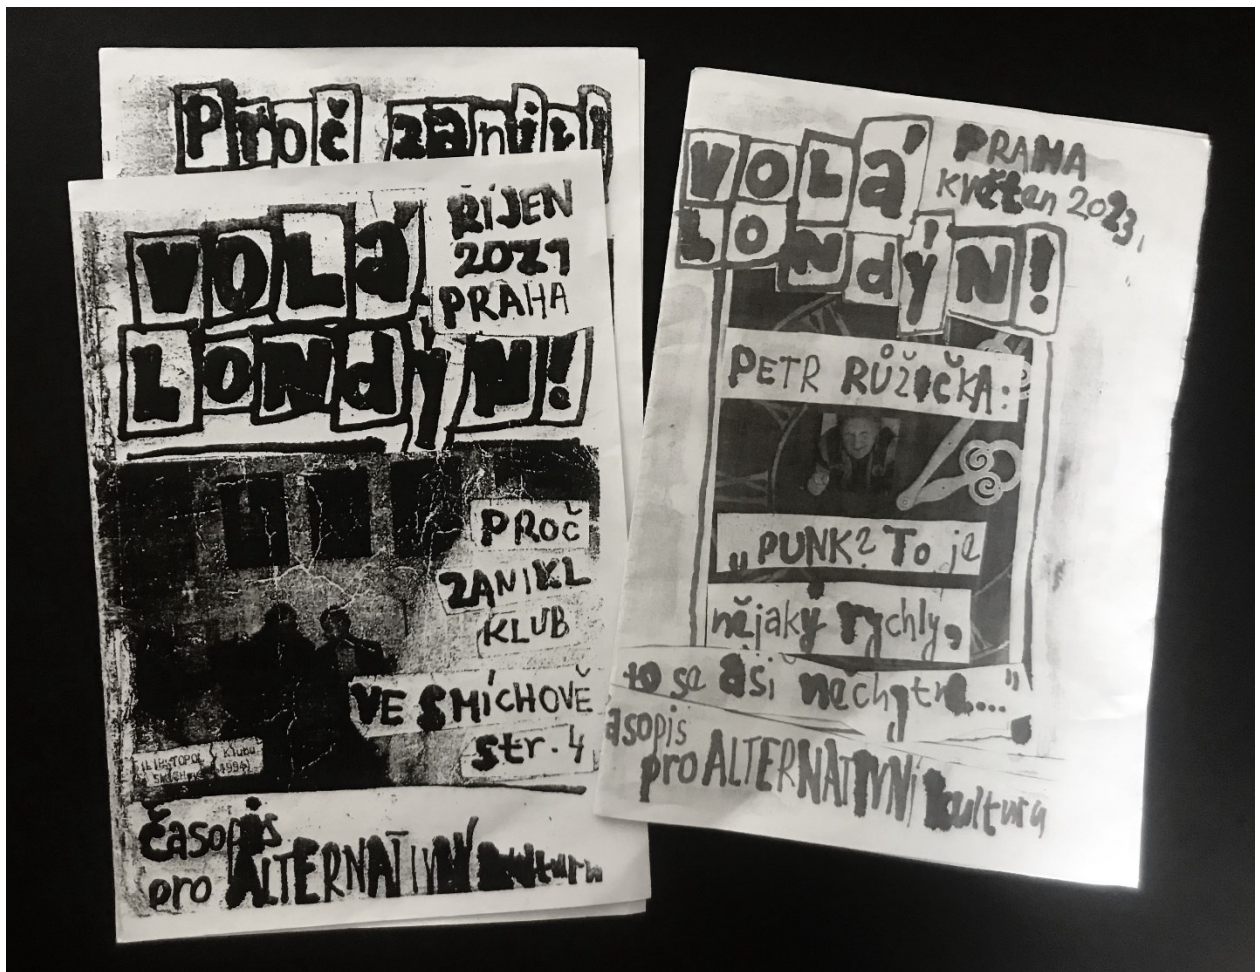 Proč zanikl
VOLÁ
LONdÝN!
ŘÍJEN
2021
PRAHA
PROČ
ZANIKL
KLUB
VE SMÍCHOVĚ
str. 4
LISTOPOL
Klubu
1994)
časopis
pro ALTERNATIVNÍ
VOLÁ
LONdÝN!
PRAHA
květen 2023
PETR RŮŽIČKA:
„PUNK? To je
nějaký rychlý,
to se asi nechytne..."
asopis
pro ALTERNATIVNÍ kultura